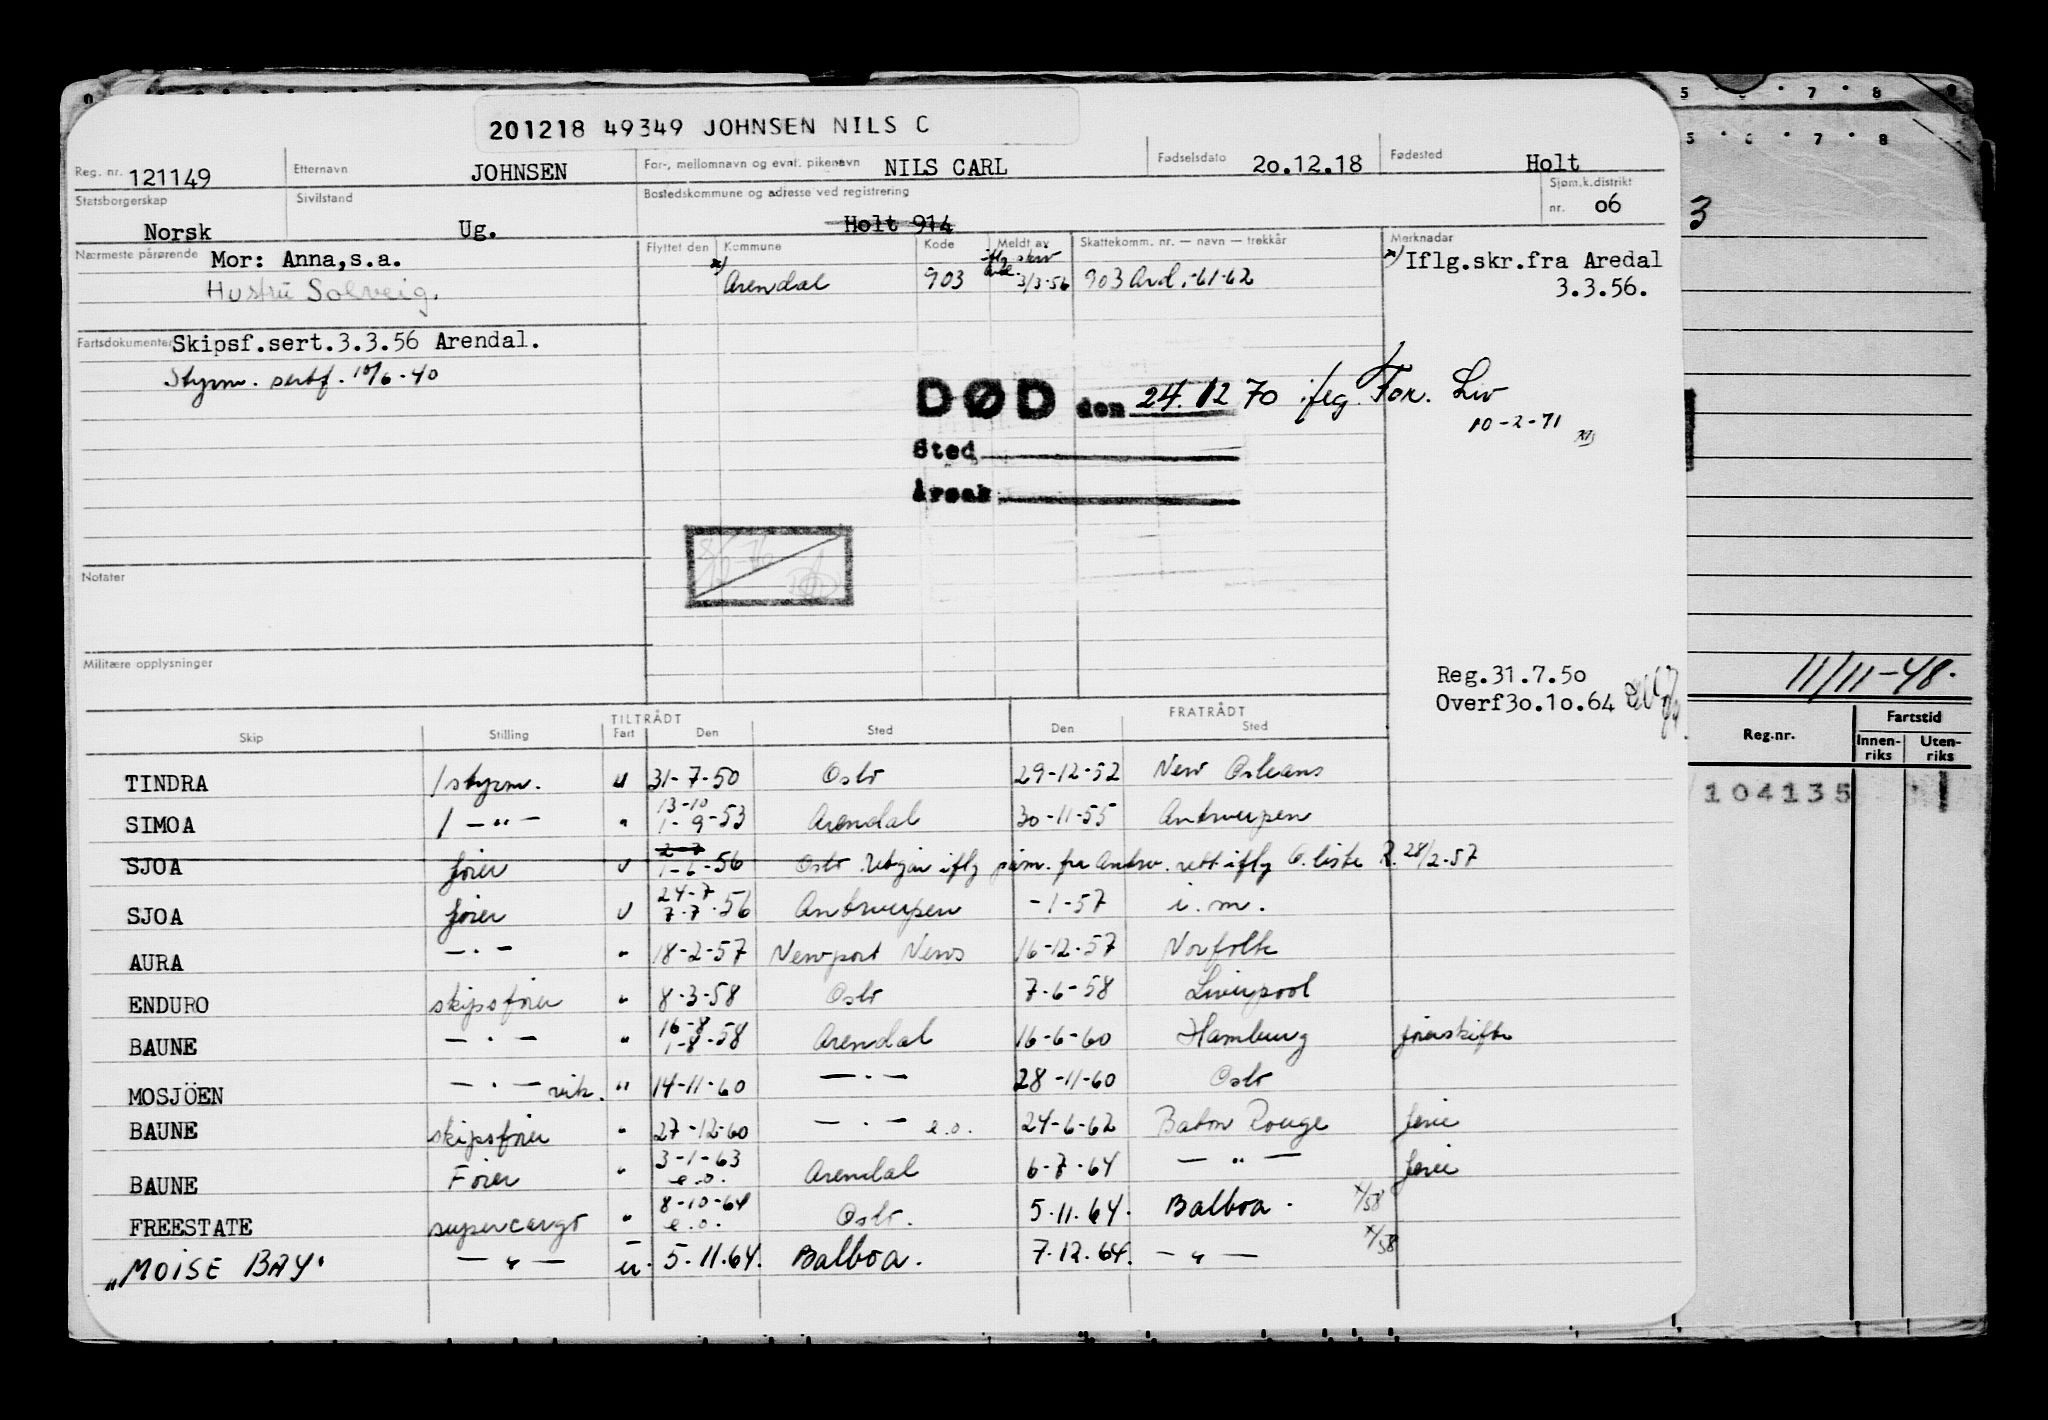 201218 49349 JOHNSEN NILS C
Reg. nr. 121149 Etternavn JOHNSEN For-, mellomnavn og evnt. pikenavn NILS CARL Fødselsdato 20.12.18 Fødested Holt
Statsborgerskap Norsk Sivilstand Ug. Bostedskommune og adresse ved registrering Holt 914 Sjøm.k.distrikt nr. 06
Nærmeste pårørende Mor: Anna,s.a.
Hustru Solveig.
Flyttet den Kommune Kode Meldt av Skattekomm. nr. — navn — trekkår Merknader
x) Arendal 903 iflg skriv 3/3-56 903 Ard. -61-62
x) Iflg.skr.fra Aredal
3.3.56.
Fartsdokumenter Skipsf.sert.3.3.56 Arendal.
Styrm. sertf. 10/6-40
DØD den 24.12 70 iflg. For. Liv
10-2-71
Sted
Årsak
Notater
Militære opplysninger
Reg.31.7.50
Overf30.10.64
TILTRÅDT FRATRÅDT
Skip Stilling Fart Den Sted Den Sted
TINDRA 1 styrm. u 31-7-50 Oslo 29-12-52 New Orleans
SIMOA 1 — " — " 13-10 1-9-53 Arendal 30-11-55 Antwerpen
SJOA fører u 2-7 1-6-56 Oslo Utgår iflg påm. fra Antw. rett iflg O. liste R. 28/2-57
SJOA fører u 24-7 7-7-56 Antwerpen -1-57 i.m.
AURA — " — " 18-2-57 Newport News 16-12-57 Norfolk
ENDURO skipsfører " 8-3-58 Oslo 7-6-58 Liverpool
BAUNE — " — " 16-8 1-8-58 Arendal 16-6-60 Hamburg førerskifte
MOSJÖEN — " — vik. " 14-11-60 — " — 28-11-60 Oslo
BAUNE skipsfører " 27-12-60 — " — e.o. 24-6-62 Baton Rouge ferie
BAUNE Fører " 3-1-63 e.o. Arendal 6-7-64 — " — ferie
FREESTATE supercargo " 8-10-64 e.o. Oslo. 5.11.64. Balboa. x/58
"MOISE BAY" — " — u. 5.11.64. Balboa. 7.12.64. — " — x/58
5 6 7 8
5 6 7 8
3
11/11-48.
Reg.nr. Fartstid
Innen-riks Uten-riks
104135 1